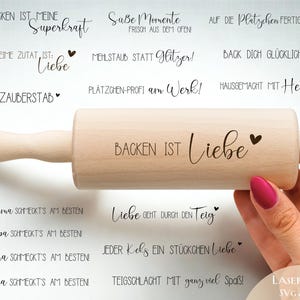 BACKEN IST MEINE
Superkraft
Süße Momente
FRISCH AUS DEM OFEN!
AUF DIE Plätzchen FERTIG
MEINE ZUTAT IST:
Liebe
MEHLSTAUB STATT Glitzer!
BACK DICH GLÜCKLICH
ZAUBERSTAB
PLÄTZCHEN-PROFI am Werk!
HAUSGEMACHT MIT
BACKEN IST Liebe
SCHMECKT'S AM BESTEN!
Liebe GEHT DURCH DEN Teig
SCHMECKT'S AM BESTEN!
JEDER Keks EIN STÜCKCHEN Liebe
SCHMECKT'S AM BESTEN!
SCHMECKT'S AM BESTEN!
TEIGSCHLACHT MIT ganz viel Spaß!
LASER
SVG